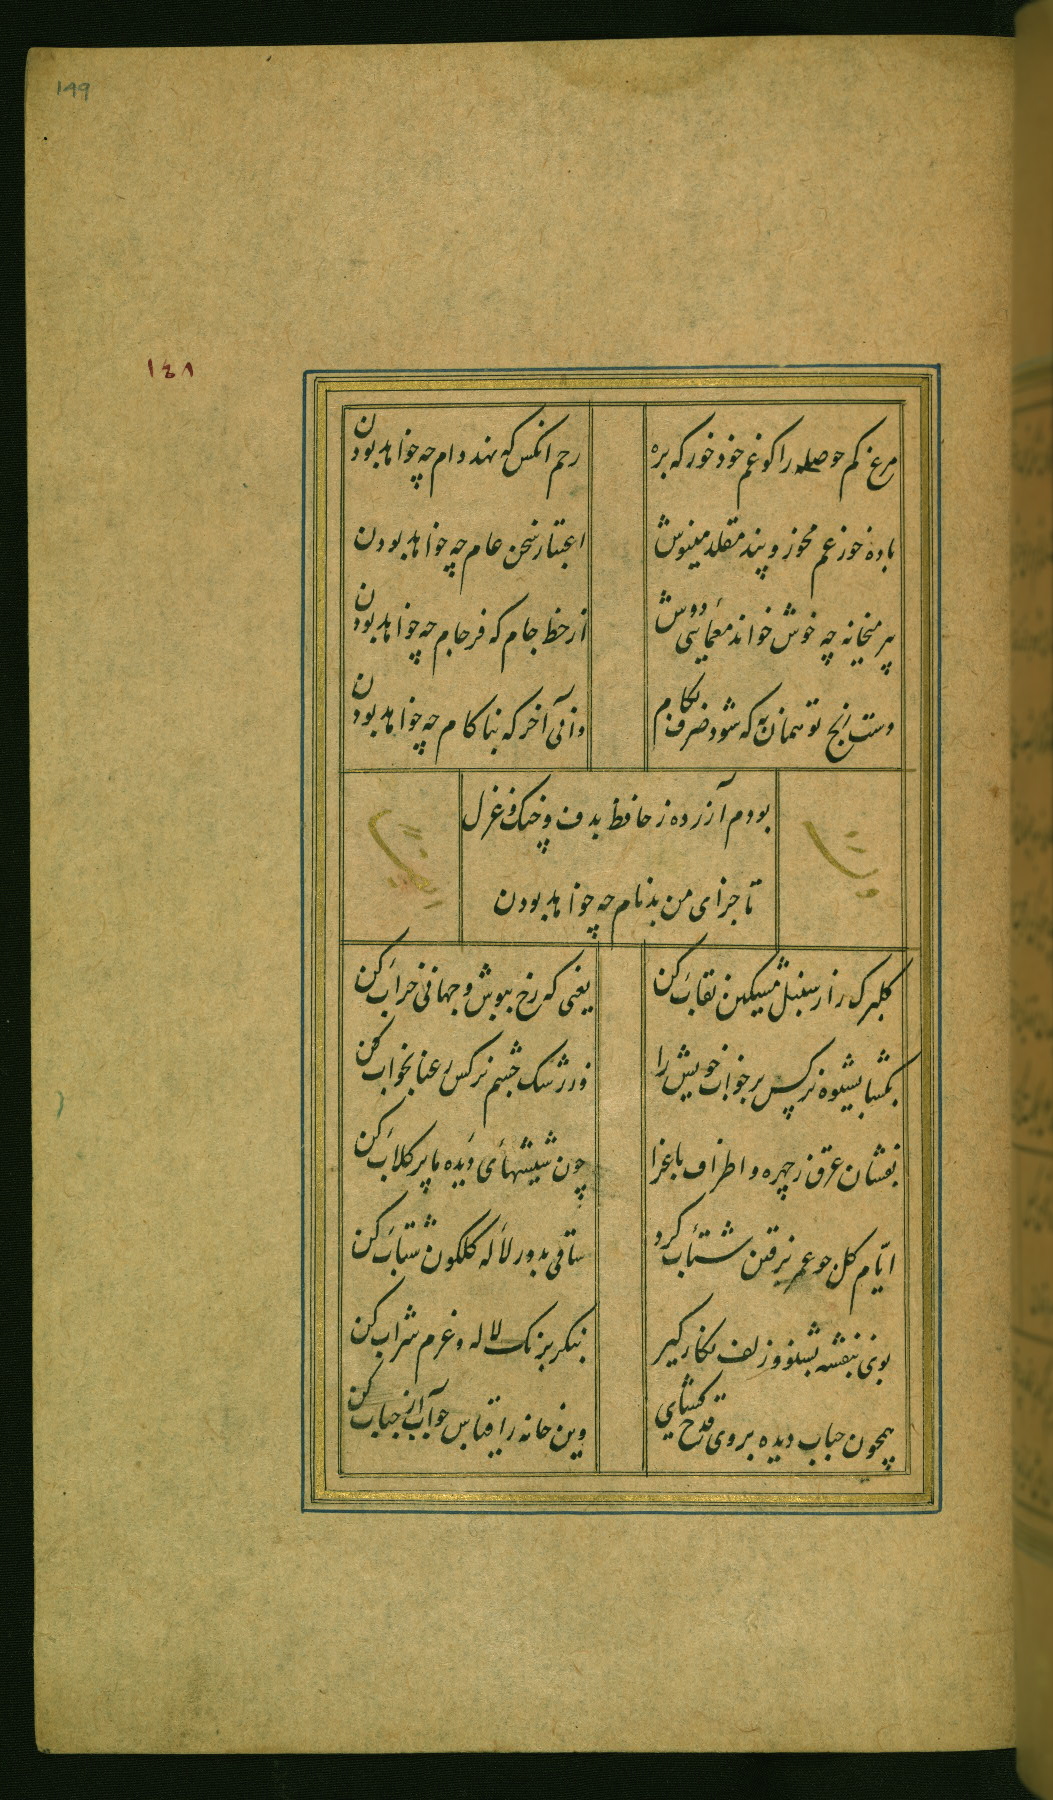 ۱۹۹
۱٤۸
مرغ کم حوصله را کو غم خود خور که برو
رحم انکس که نهد دام چه خواهد بودن
باده خور غم مخور و پند مقلد منیوش
اعتبار سخن عام چه خواهد بودن
پیر میخانه چه خوش خواند معمائی دوش
از خط جام که فرجام چه خواهد بودن
دست رنج تو همان به که شود صرف بکام
دانی آخر که بناکام چه خواهد بودن
بودم آزرده ز حافظ بدف و چنک و غزل
تا جزای من بدنام چه خواهد بودن
کلبرک را ز سنبل مشکین نقاب کن
یعنی که رخ بپوش و جهانی خراب کن
بکشا بشیوه نرکس پر خواب خویش را
وز رشک چشم نرکس رعنا بخواب کن
بفشان عرق ز چهره و اطراف باغ را
چون شیشهای دیده ما پر کلاب کن
ایام کل چو عمر برفتن شتاب کرد
ساقی بدور لاله کلکون شتاب کن
بوی بنفشه بشنو و زلف نکار کیر
بنکر برنک لاله و عزم شراب کن
همچون حباب دیده بروی قدح کشای
وین خانه را قیاس چو آب از حباب کن